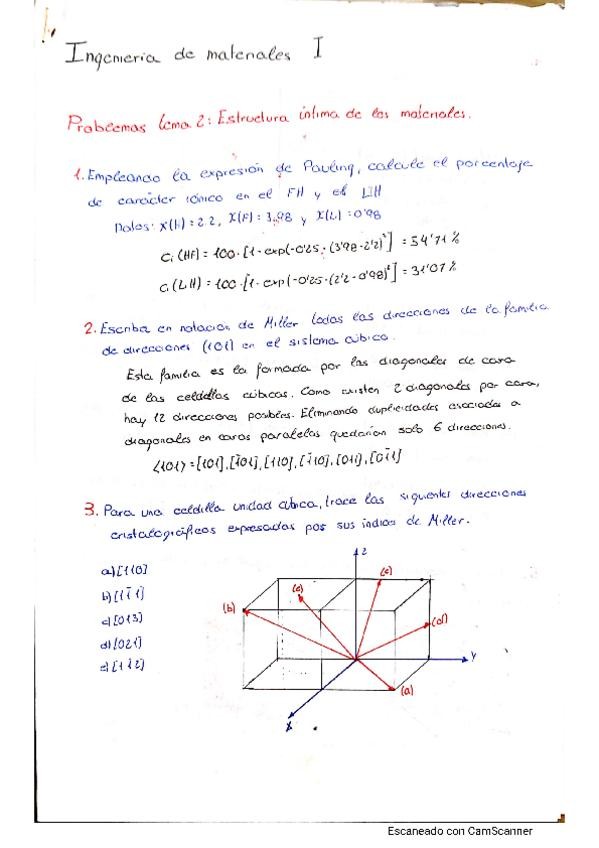 Ingenieria de materiales I
Problemas tema 2: Estructura íntima de los materiales.
1. Empleando la expresión de Pauling, calcule el porcentaje
de carácter iónico en el FH y el LiH
Datos: X(H)=2.2, X(F)=3.98 y X(Li)=0'98
Ci (HF) = 100·[1-exp(-0'25·(3'98-2'2)²] = 54'71%
Ci (LiH) = 100·[1-exp(-0'25·(2'2-0'98)²] = 31'07%
2. Escriba en notación de Miller todas las direcciones de la familia
de direcciones ⟨101⟩ en el sistema cúbico.
Esta familia es la formada por las diagonales de cara
de las celdillas cúbicas. Como existen 2 diagonales por cara,
hay 12 direcciones posibles. Eliminando duplicidades asociadas a
diagonales en caras paralelas quedarían solo 6 direcciones.
⟨101⟩=[101],[1̄01],[110],[1̄10],[011],[01̄1]
3. Para una celdilla unidad cúbica, trace las siguientes direcciones
cristalográficas expresadas por sus índices de Miller.
a)[110]
b)[11̄1]
c)[013]
d)[021]
e)[11̄2]
z
(c)
(e)
(b)
(d)
y
(a)
x
Escaneado con CamScanner